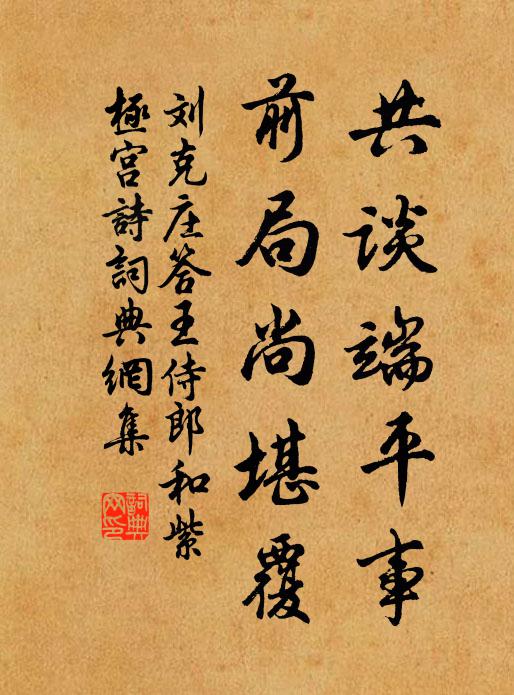 共谈端平事
前局尚堪覆
刘克庄答王侍郎和紫
極宫詩詞典網集
詞典